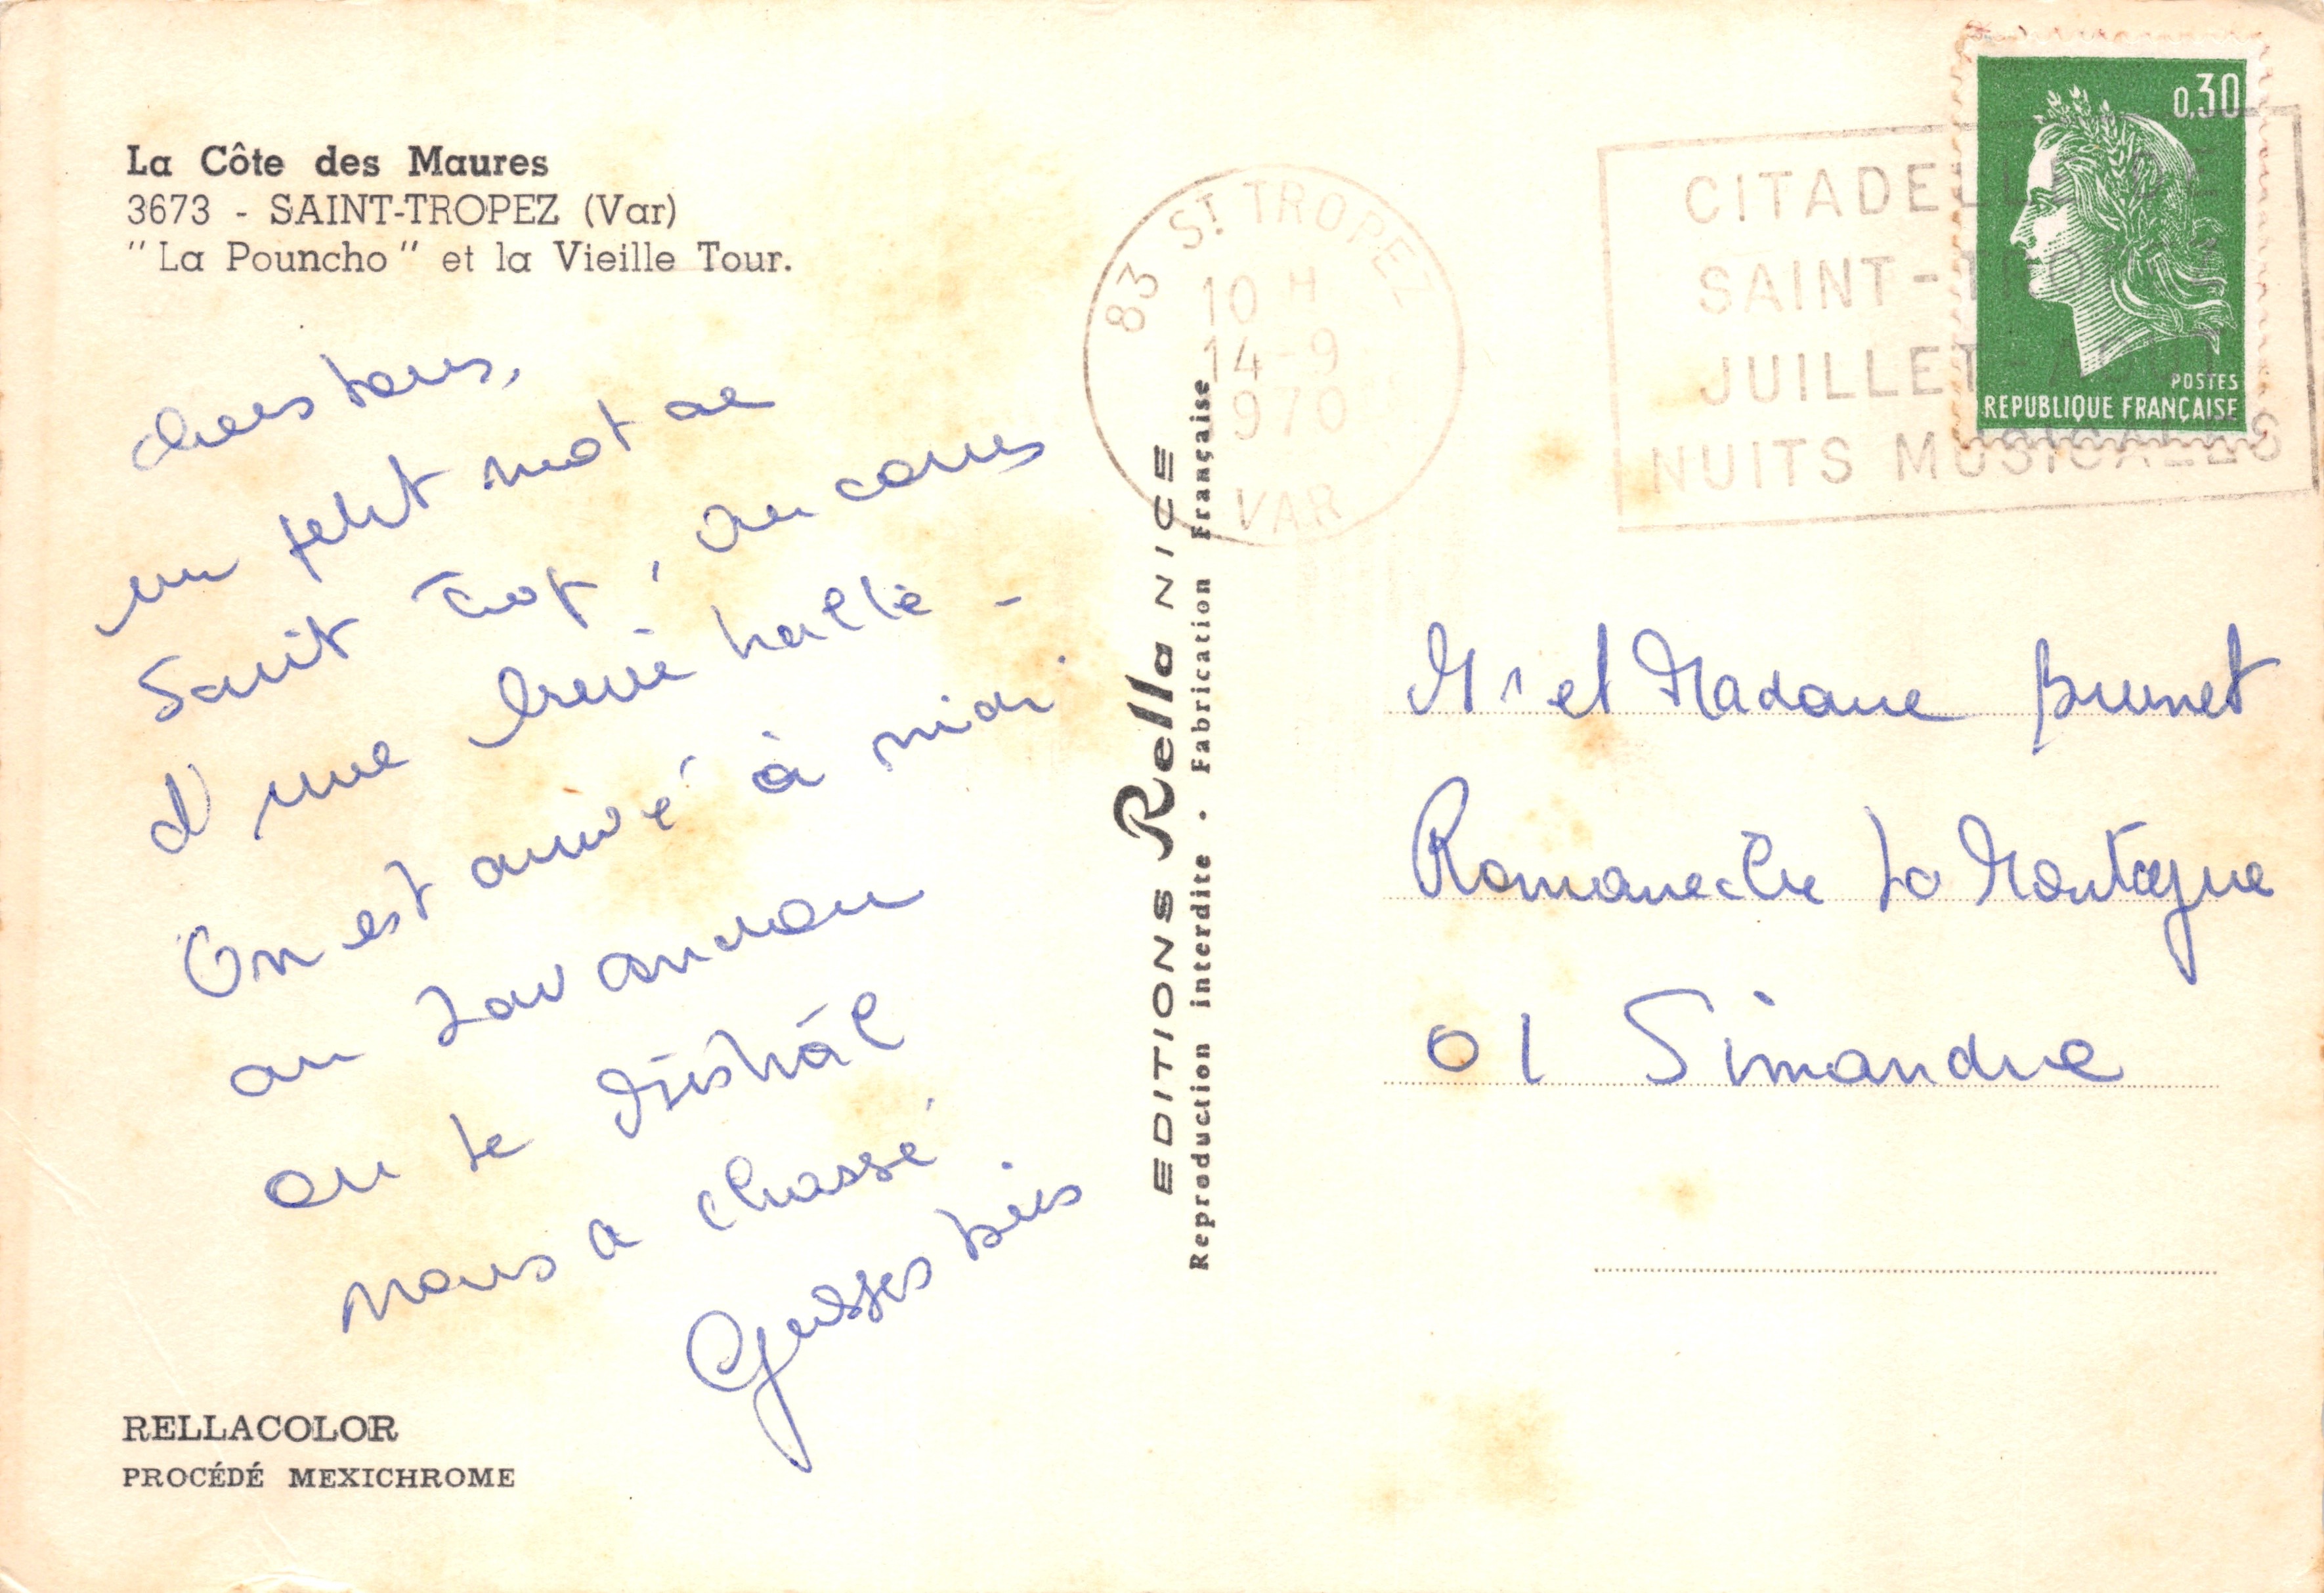 La Côte des Maures
3673 - SAINT-TROPEZ (Var)
"La Pouncho" et la Vieille Tour.
chers tous,
un petit mot de
Saint Trop, au cours
d'une brève halte -
On est arrivé à midi
au Lavandou
où le Mistral
nous a chassé
Grosses bises
RELLACOLOR
PROCÉDÉ MEXICHROME
EDITIONS Rella NICE
Reproduction interdite • Fabrication Française
83 ST TROPEZ
10 H
14-9
1970
VAR
CITADELLE DE
SAINT-TROPEZ
JUILLET-AOUT
NUITS MUSICALES
0,30
POSTES
REPUBLIQUE FRANÇAISE
Mr et Madame Brunet
Romanèche La Montagne
01 Simandre